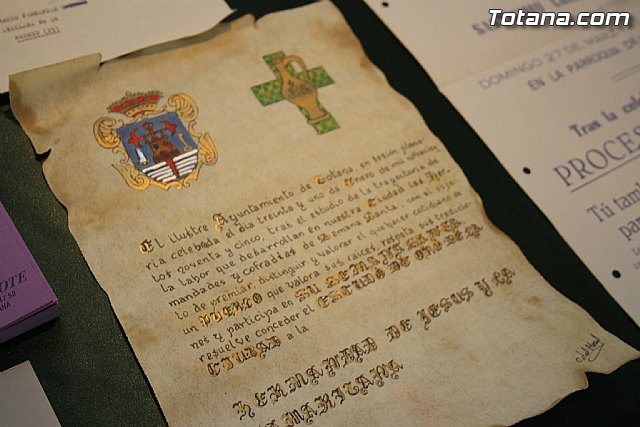 Totana.com
MADRID
El ilustre Ayuntamiento de Totana, en sesión plena-
ria celebrada el día treinta y uno de Enero de mil novecien-
tos noventa y cinco, tras el estudio de la trayectoria de
la labor que desarrollan en nuestra Ciudad las Her-
mandades y cofradías de Semana Santa, con el obje-
to de premiar, distinguir y valorar el quehacer cotidiano de
un PUEBLO que valora sus raíces, respeta sus tradicio-
nes y participa en SU SEMANA SANTA
resuelve conceder el ESCUDO DE ORO DE LA
CIUDAD a la
HERMANDAD DE JESUS Y LA
SAMARITANA
OTE
DOMINGO 27 DE
EN LA PARROQUIA DE
Tras la
PROCE
Tú